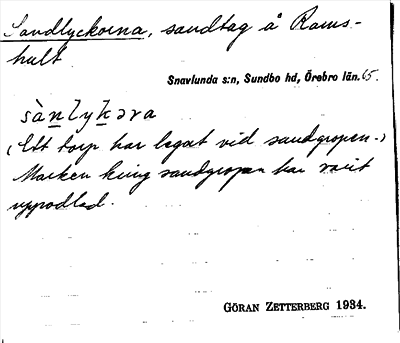 Sandlyckorna, sandtag å Rams-
hult.
Snavlunda s:n, Sundbo hd, Örebro län. 65.
sàn̲lyk̲əra
(Ett torp har legat vid sandgropen.)
Marken kring sandgropen har varit
uppodlad.
GÖRAN ZETTERBERG 1934.